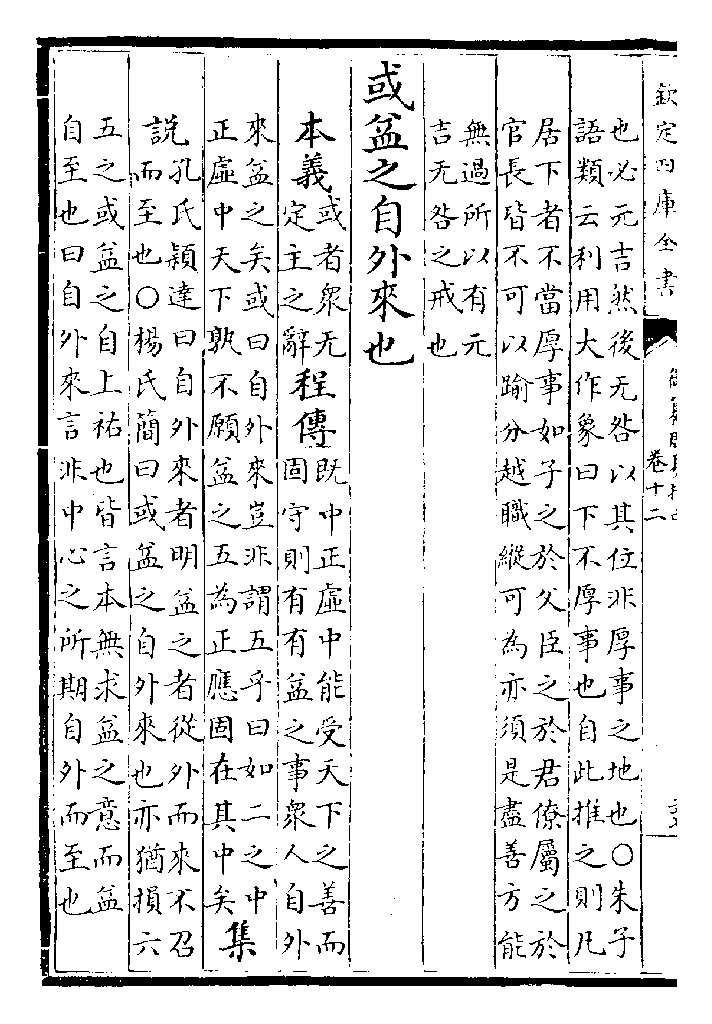 欽定四庫全書
卷十二
也必元吉然後无咎以其位非厚事之地也○朱子
語類云利用大作象曰下不厚事也自此推之則凡
居下者不當厚事如子之於父臣之於君僚屬之於
官長皆不可以踰分越職縱可為亦須是盡善方能
無過所以有元
吉无咎之戒也
或益之自外來也
本義
或者衆无
定主之辭
程傳
既中正虛中能受天下之善而
固守則有有益之事衆人自外
來益之矣或曰自外來豈非謂五乎曰如二之中
正虛中天下孰不願益之五為正應固在其中矣
集
說
孔氏穎達曰自外來者明益之者從外而來不召
而至也○楊氏簡曰或益之自外來也亦猶損六
五之或益之自上祐也皆言本無求益之意而益
自至也曰自外來言非中心之所期自外而至也